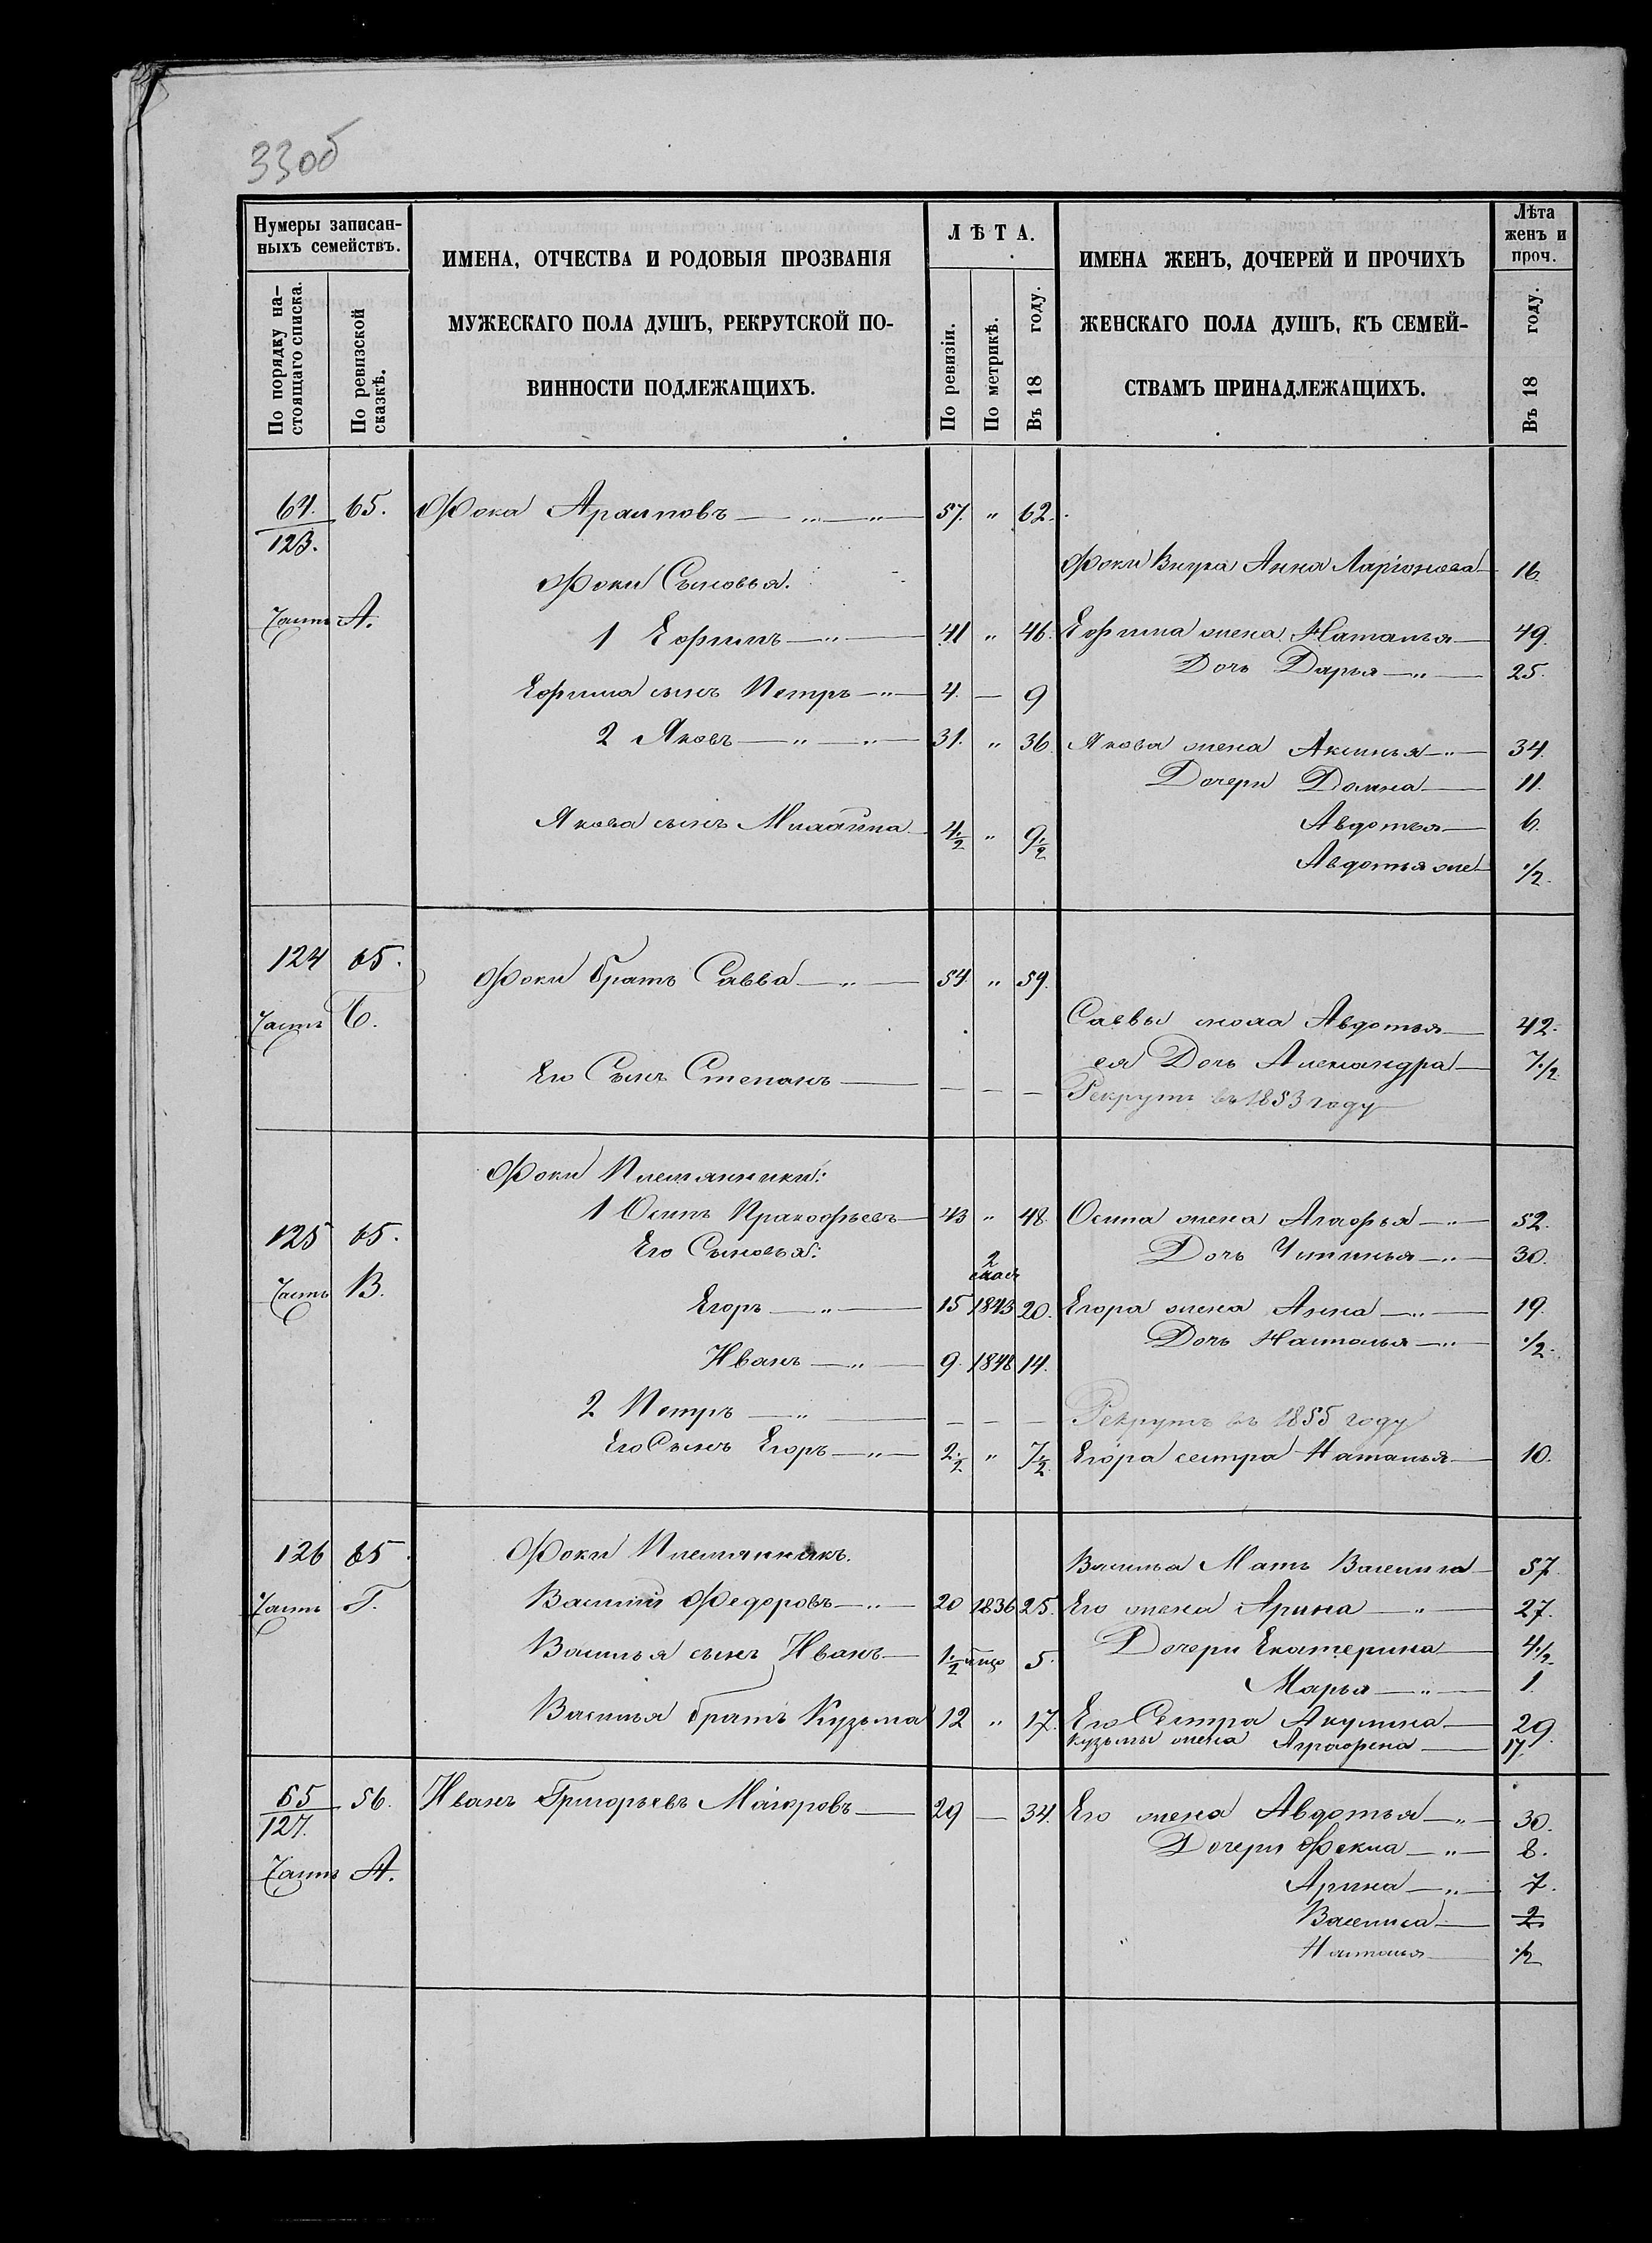 33об
Нумеры записан-
ныхъ семействъ.
По порядку на-
стоящаго списка.
По ревизской
сказкѣ.
ИМЕНА, ОТЧЕСТВА И РОДОВЫЯ ПРОЗВАНІЯ
МУЖЕСКАГО ПОЛА ДУШЪ, РЕКРУТСКОЙ ПО-
ВИННОСТИ ПОДЛЕЖАЩИХЪ.
ЛѢТА.
По ревизіи.
По метрикѣ.
Въ 18 году.
ИМЕНА ЖЕНЪ, ДОЧЕРЕЙ И ПРОЧИХЪ
ЖЕНСКАГО ПОЛА ДУШЪ, КЪ СЕМЕЙ-
СТВАМЪ ПРИНАДЛЕЖАЩИХЪ.
Лѣта
женъ и
проч.
Въ 18 году.
64. 65. Фока 57. " 62.
123.
Фоки Внука Анна Ларіонова 16.
Фоки Сыновья.
Часть А.
1 Ефимъ — " — 41 " 46. Ефима жена Наталья — 49.
Дочь Дарья — " — 25.
Ефима сынъ Петръ — " — 4. — 9
2 Яковъ — " — " — 31. " 36. Якова жена Аксинья — " — 34.
Дочери Домна — 11.
Якова сынъ 4 1/2 " 9 1/2 Авдотья — 6.
Авдотья же 1/2.
124 65. Фоки братъ Савва — " — 54. " 59.
Часть Б.
Саввы жена Авдотья — 42.
ея Дочь Александра — 7 1/2
Его Сынъ Степанъ — — — — Рекрутъ въ 1853 году
Фоки Племянники:
125 65. 1 Осипъ Пракофьевъ — 43 " 48. Осипа жена Агафья — " — 52.
Его Сыновья: Дочь Устинья — " — 30.
Часть В.
2
сказ
Егоръ — " — 15 1843 20. Егора жена Анна — " — 19.
Дочь Наталья — " — 1/2.
Иванъ — " — 9. 1848 14.
2 Петръ — " — — — — Рекрутъ въ 1855 году
Его Сынъ Егоръ — " — 2 1/2 " 7 1/2 Егора сестра Наталья — 10.
126 65. Фоки Племянникъ.
Василья Мать Василиса — 57.
Часть Г. Василій Федоровъ — " — 20 1836 25. Его жена Арина — " — 27.
Василья сынъ Иванъ — 1 1/2 5. Дочери Екатерина — 4 1/2
Марья — " — 1
Василья братъ Кузьма 12 " 17. Его Сестра Акулина — 29.
Кузьмы жена Аграфена — 17.
65 56. Иванъ Григорьевъ Маіоровъ — 29 — 34. Его жена Авдотья — " — 30.
127.
Дочери Фекла — " — 8.
Часть А.
Арина — " — 7.
Василиса — 2
Наталья — 1/2